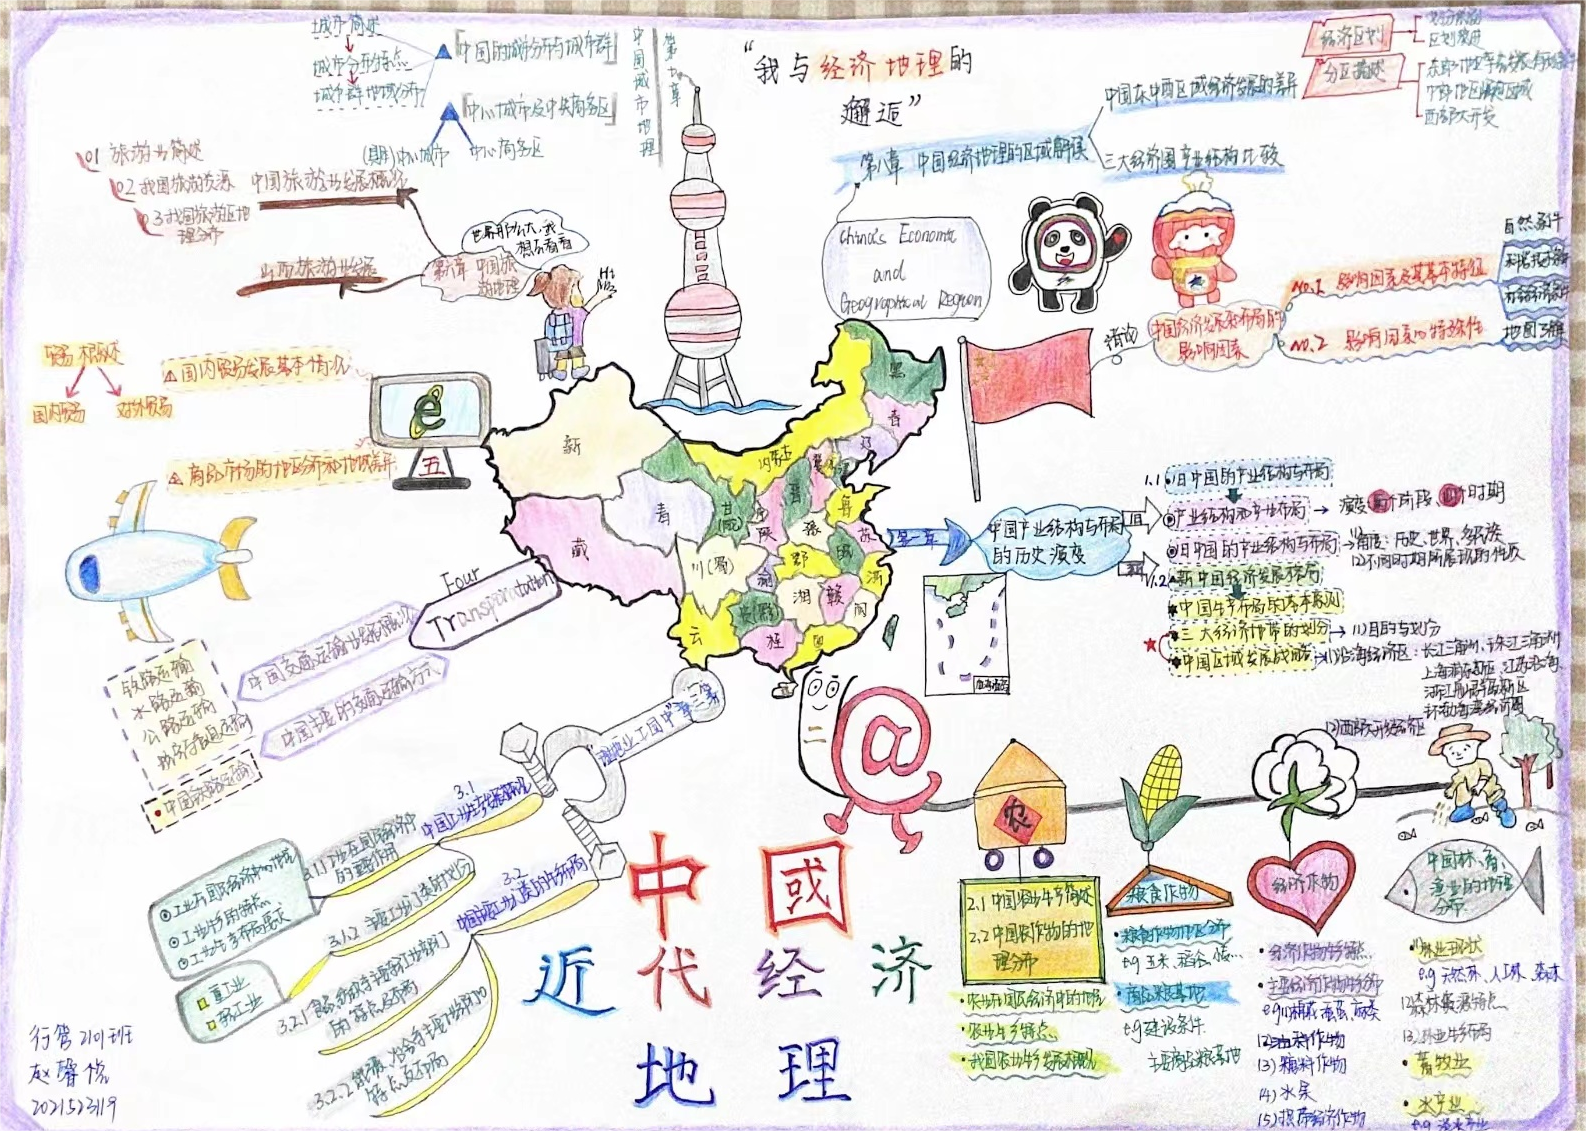 “我与经济地理的
邂逅”
城市简述
城市分布特点
城市群地域分布
中国的城市分布与城市群
中心城市及中央商务区
中心商务区
第七章
中国城市地理
01 旅游业简述
02 我国旅游资源
03 我国旅游区地
理分布
中国旅游业发展概况
山西旅游业发展
世界那么大,我
想去看看
第六章 中国旅
游地理
Hi
贸易概述
国内贸易
对外贸易
国内贸易发展基本情况
商品市场的地区分布和地域差异
e
五
Four
Transportation
中国交通运输业发展概况
中国主要的交通运输方式
铁路运输
水路运输
公路运输
中国铁路运输
第八章 中国经济地理的区域解读
中国东中西区域经济发展的差异
三大经济圈产业结构比较
经济区划
分区概述
西部大开发
China's Economic
and
Geographical Region
绪论
中国经济发展和布局的
影响因素
No.1 影响因素及其基本特征
No.2 影响因素的特殊性
自然条件
科学技术条件
社会经济条件
地图了解
黑
吉
辽
内蒙古
新
青
藏
甘
(陇)
陕
晋
冀
鲁
豫
苏
皖
鄂
川(蜀)
渝
湘
赣
浙
闽
贵(黔)
云
桂
粤
第一章
中国产业结构与布局
的历史演变
1.1 旧中国的产业结构与布局
产业结构和产业布局
旧中国的产业结构与布局
角度:历史、世界、多民族
1.2 新中国经济发展格局
中国生产布局的基本原则
三大经济地带的划分 → (1)目的与划分
中国区域发展战略
(1)沿海经济区:长江三角洲、珠江三角洲
上海浦东新区、江苏沿海
环渤海湾经济圈
(2)西部大开发经济区
第三章 中国工业地理
3.1
中国工业生产发展简况
3.1.1 工业在国民经济中
的重要作用
3.1.2 主要工业门类的划分
3.2
中国主要工业门类的生产布局
工业生产的特点
工业生产布局要求
重工业
轻工业
3.2.1
的特点及布局
3.2.2
特点及布局
@
农
2.1 中国农业生产简述
2.2 中国农作物的地
理分布
农业在国民经济中的地位
农业生产特点
我国农业生产发展概况
粮食作物
粮食作物地区分布
eg 玉米、稻谷、
商品粮基地
eg 建设条件
主要商品粮基地
经济作物
经济作物生产特点
主要经济作物生产分布
eg(1)棉花、蚕茧、麻类
(2)油料作物
(3)糖料作物
(4)水果
中国林、畜、
渔业的地理
分布
林业现状
eg 天然林、人工林、森林
(2)森林资源特点
(3)林业生产布局
畜牧业
水产业
中國
近代经济
地理
行管2101班
赵馨悦
2021523119